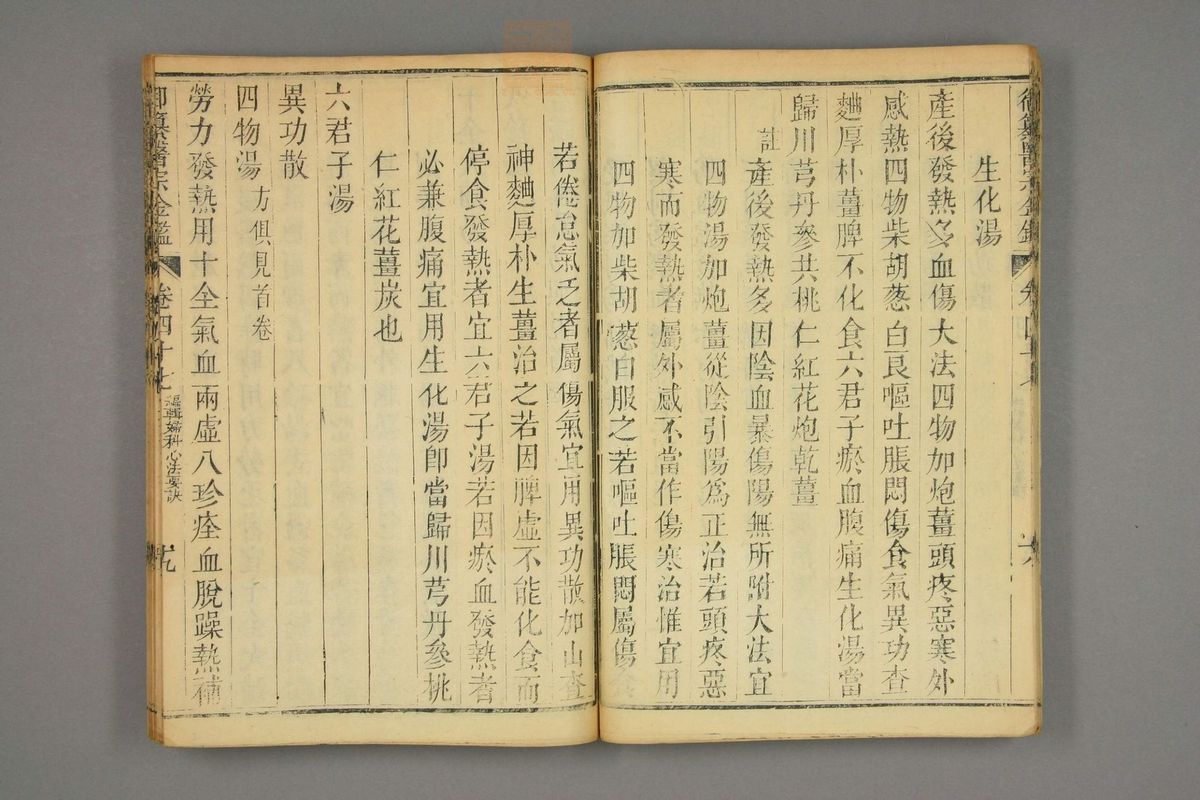 生化湯
產後發熱多血傷大法四物加炮薑頭疼惡寒外
感熱四物柴胡葱白良嘔吐脹悶傷食氣異功查
麯厚朴薑脾不化食六君子瘀血腹痛生化湯當
歸川芎丹參共桃仁紅花炮乾薑
註
產後發熱多因陰血暴傷陽無所附大法宜
四物湯加炮薑從陰引陽爲正治若頭疼惡
寒而發熱者屬外感不當作傷寒治惟宜用
四物加柴胡葱白服之若嘔吐脹悶屬傷食
若倦怠氣乏者屬傷氣宜用異功散加山查
神麯厚朴生薑治之若因脾虛不能化食而
停食發熱者宜六君子湯若因瘀血發熱者
必兼腹痛宜用生化湯卽當歸川芎丹參桃
仁紅花薑炭也
六君子湯
異功散
四物湯方俱見首卷
勞力發熱用十全氣血兩虛八珍痊血脫躁熱補
御纂醫宗金鑑 卷四十七 編輯婦科心法要訣 十九